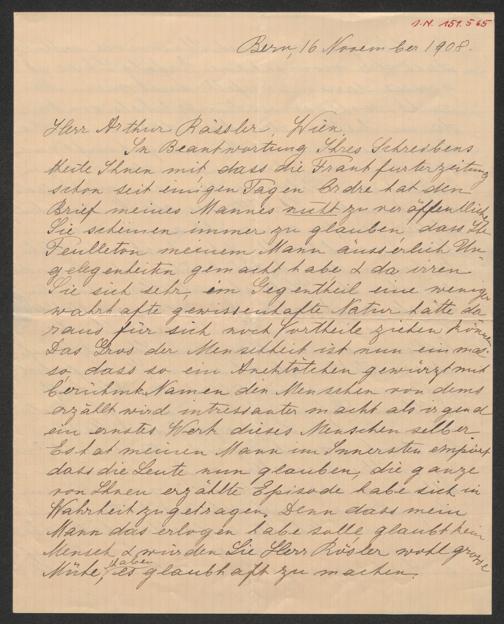 I.N. 151.565
Bern, 16 November 1908.
Herr Arthur Rössler, Wien.
In Beantwortung Ihres Schreibens
theile Ihnen mit, dass die Frankfurterzeitung
schon seit einigen Tagen Ordre hat den
Brief meines Mannes nicht zu veröffentlichen
Sie scheinen immer zu glauben dass Ihr
Feulleton meinem Mann äusserlich Un-
gelegenheitn gemacht habe & da irren
Sie sich sehr, im Gegentheil eine weniger
wahrhafte gewissenhafte Natur hätte da
raus für sich noch Vortheile ziehen können
Das Gros der Menschheit ist nun einmal
so, dass so ein Anekdötchen gewürzt mit
berühmte Namen den Menschen von dems
erzählt wird intressanter macht als irgend
ein ernstes Werk dieses Menschen selber.
Es hat meinen Mann im Innersten empört
dass die Leute nun glauben, die ganze
von Ihnen erzählte Episode habe sich in
Wahrheit zugetragen. Denn dass mein
Mann das erlogen habe solle, glaubt kein
Mensch & würden Sie Herr Rösler wohl grosse
Mühe, haben es glaubhaft zu machen.